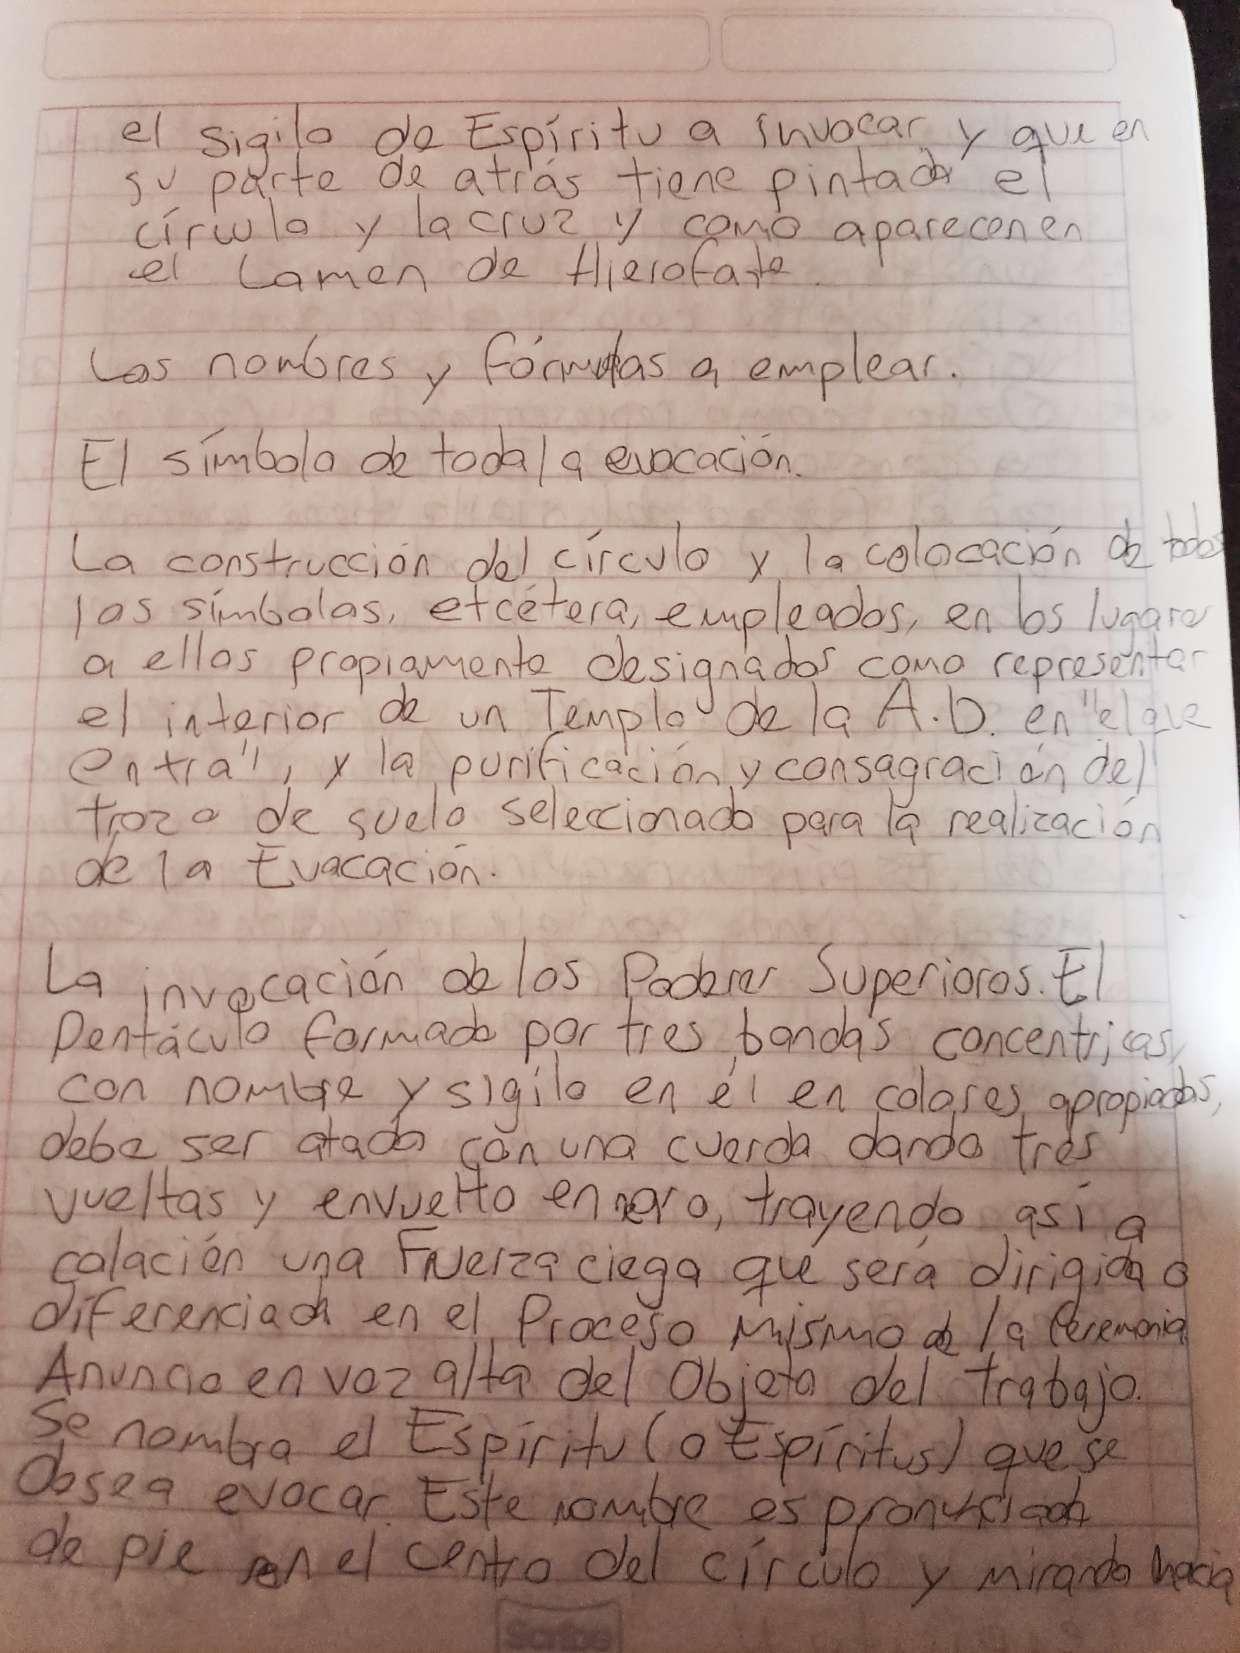 el sigilo de Espíritu a invocar y que en
su parte de atrás tiene pintado el
círculo y la cruz y como aparecen en
el Lamen de Hierofate.
Los nombres y fórmulas a emplear.
El símbolo de toda la evocación.
La construcción del círculo y la colocación de todos
los símbolos, etcétera, empleados, en los lugares
a ellos propiamente designados como representar
el interior de un Templo de la A.D. en "el que
entra", y la purificación y consagración del
trozo de suelo seleccionado para la realización
de la Evacación.
La invocación de los Poderes Superiores. El
Pentáculo formado por tres bandas concentricas,
con nombre y sigilo en él en colores apropiados,
debe ser atado con una cuerda dando tres
vueltas y envuelto en negro, trayendo así a
colación una Fuerza ciega que será dirigida o
diferenciada en el Proceso mismo de la Ceremonia
Anuncio en voz alta del Objeto del trabajo.
Se nombra el Espíritu (o Espíritus) que se
desea evocar. Este nombre es pronunciado
de pie en el centro del círculo y mirando hacia
Scribe